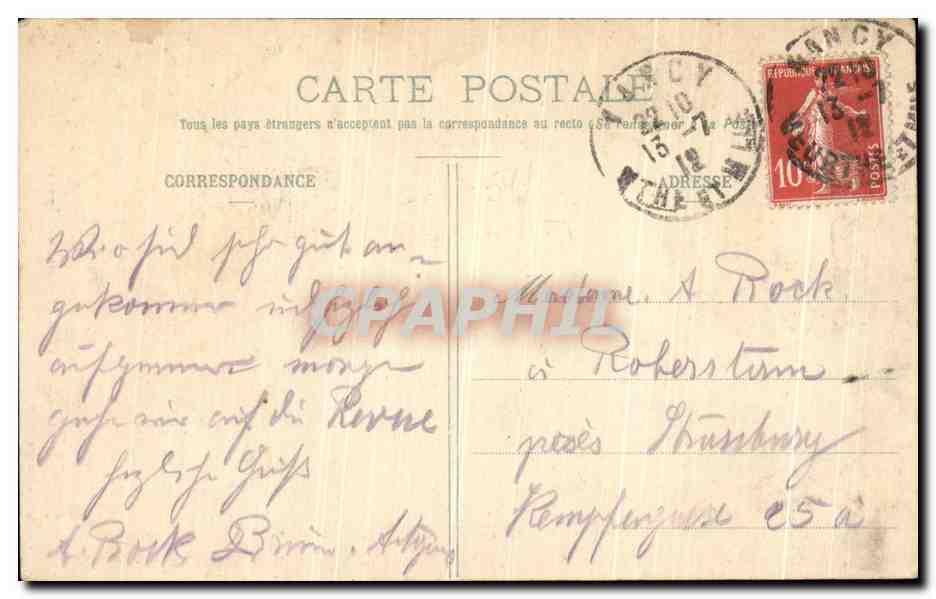 CARTE POSTALE
Tous les pays étrangers n'acceptent pas la correspondance au recto (Se renseigner à la Poste
CORRESPONDANCE
ADRESSE
NANCY
22 10
13 - 7
12
MTHE ET M
NANCY
13 - 7
12
REPUBLIQUE FRANÇAISE
10
POSTES
sehr gut an-
gekommen
aufgenommen morgen
gehe wir auf die Revue
herzliche Grüß
A. Rock
Madame. A Rock.
à Robertsau
près Strassburg
Kempfergasse 25 a
CPAPHIL